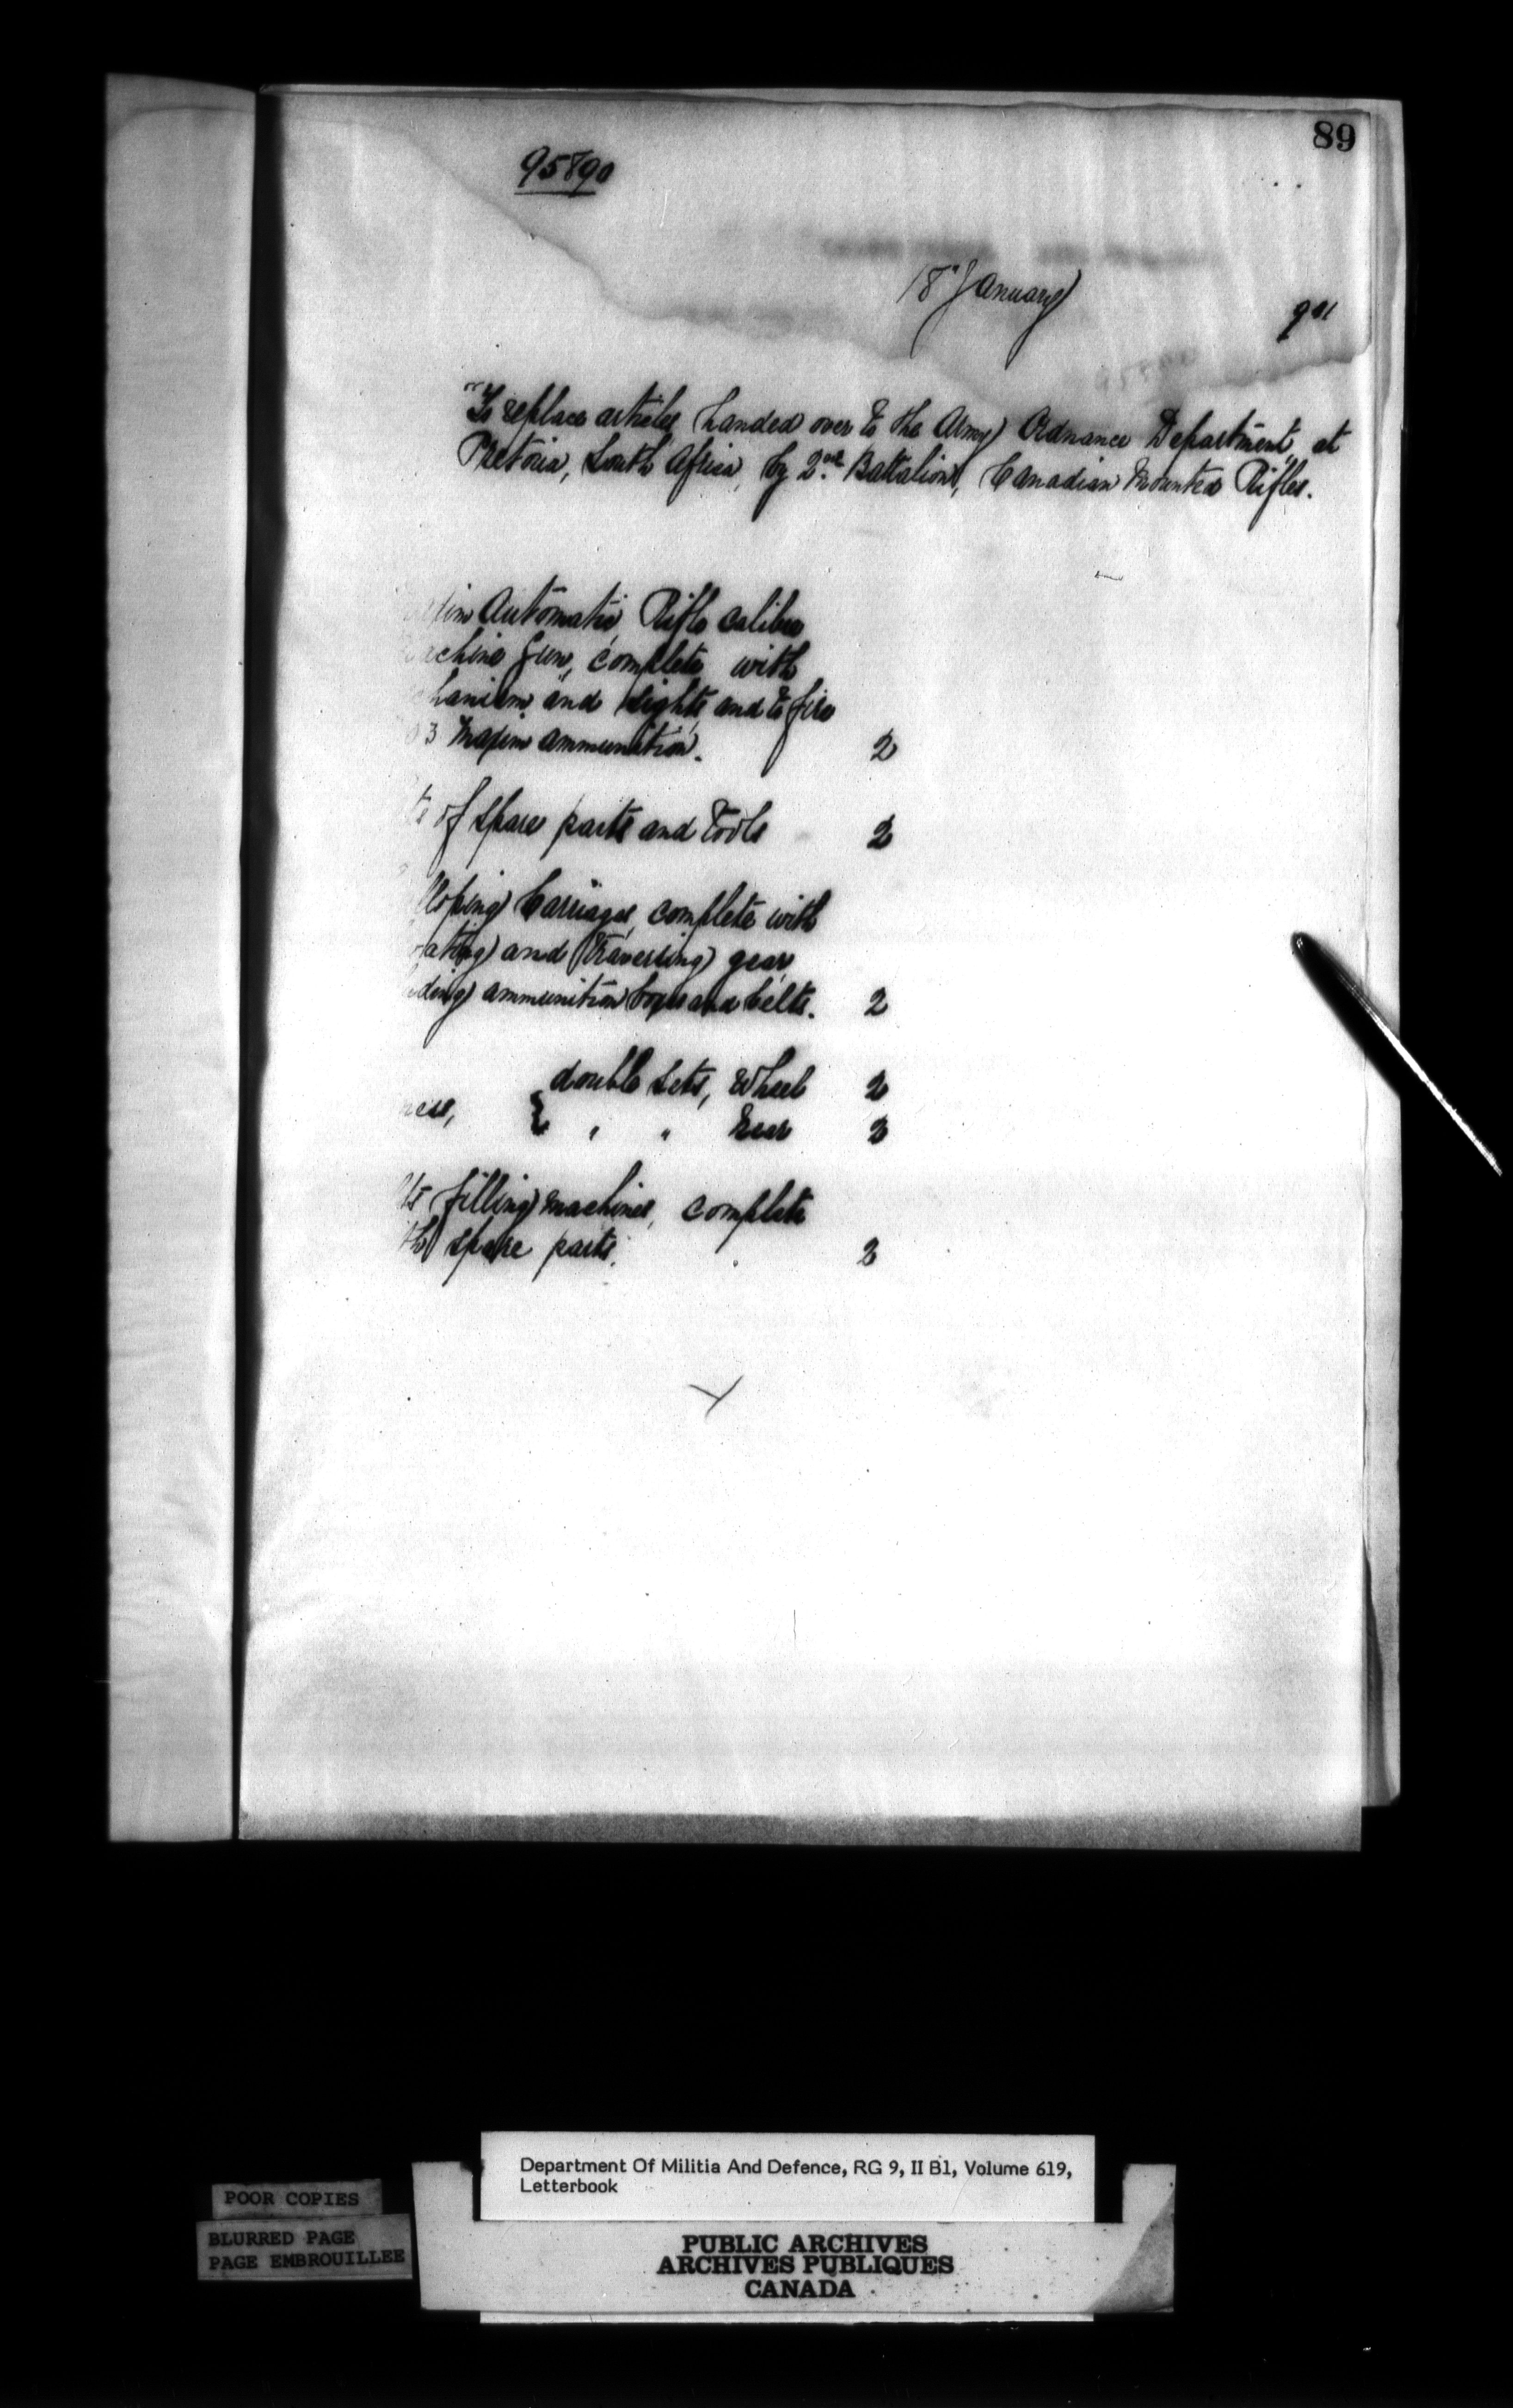 89
95890
18" January
901
"To replace articles handed over to the Army Ordnance Department, at
Pretoria, South Africa, by 2nd Battalion, Canadian Mounted Rifles.
xim Automatic Rifle calibre
achine Gun, complete with
hanism and sights and to fire
03 Maxim ammunition. 2
ts of spare parts and tools 2
lloping Carriages, complete with
vating and Traversing gear
uding ammunition boxes and belts. 2
double sets, Wheel 2
ness, { " " Lead 2
lt filling machines, complete
th spare parts. 2
Department Of Militia And Defence, RG 9, II B1, Volume 619,
Letterbook
POOR COPIES
BLURRED PAGE
PAGE EMBROUILLEE
PUBLIC ARCHIVES
ARCHIVES PUBLIQUES
CANADA